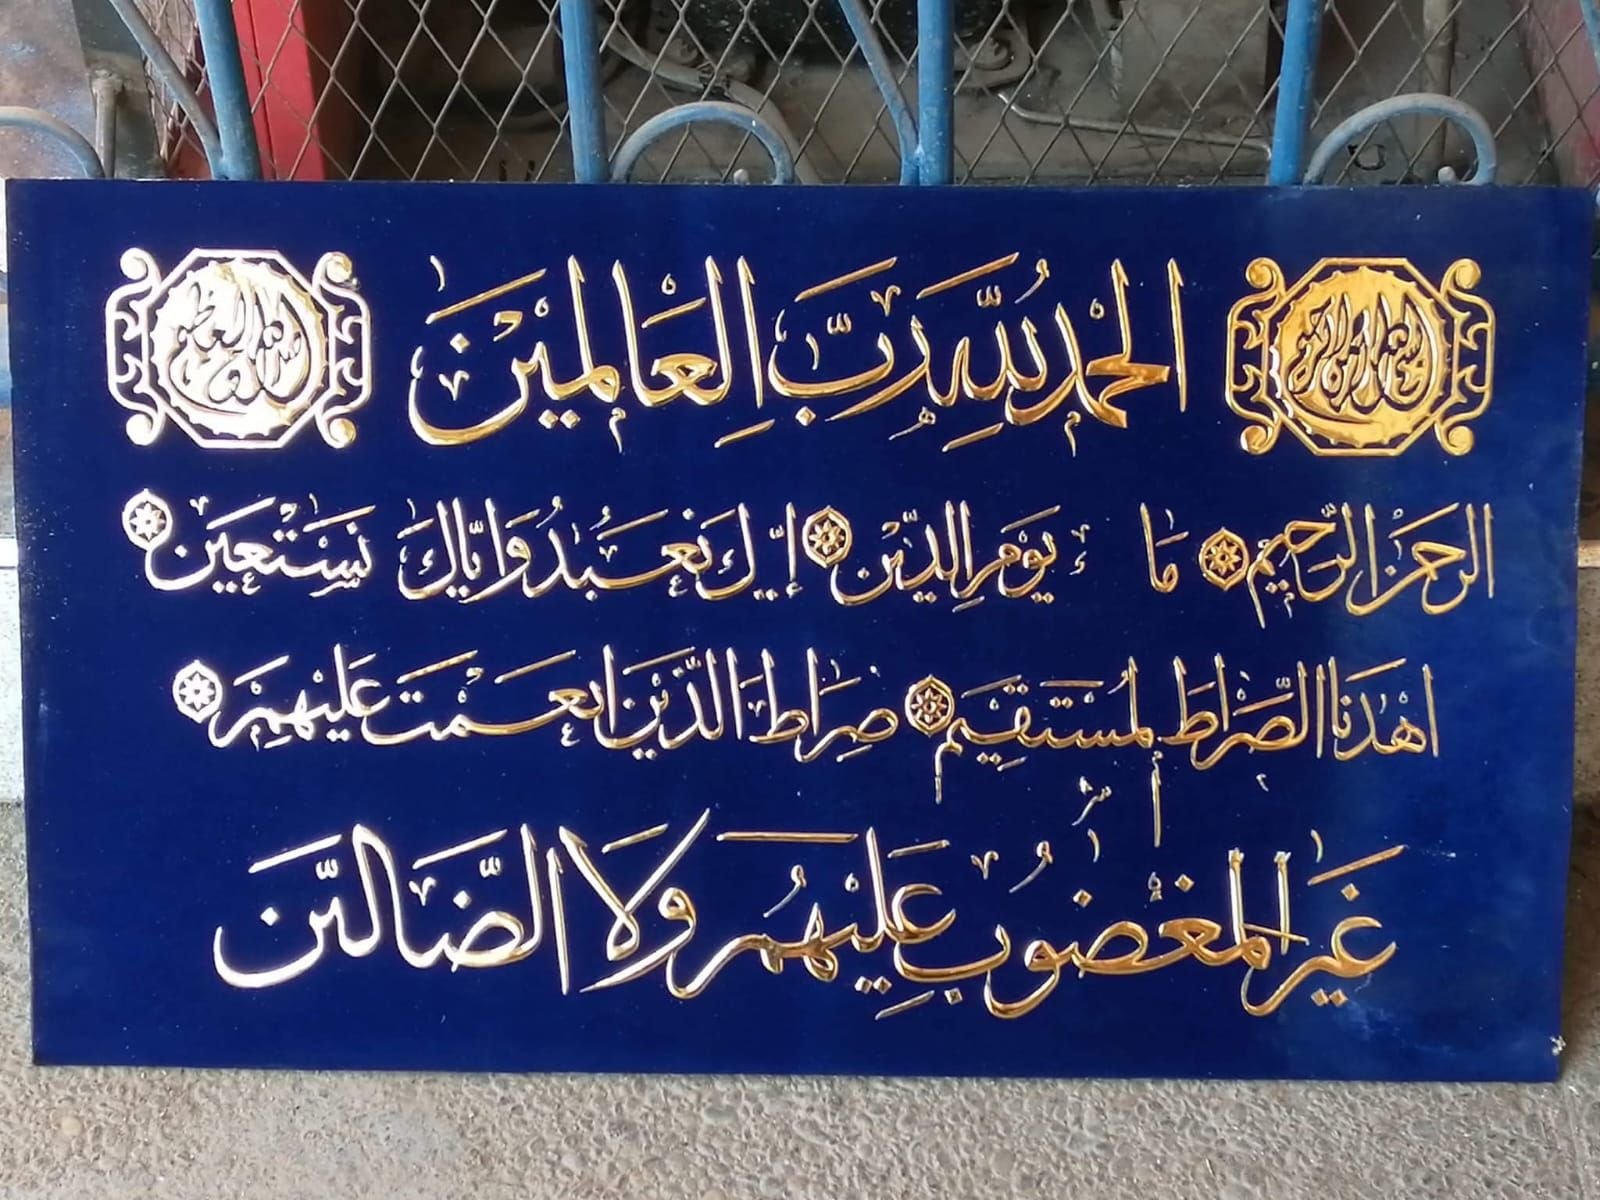 بسم الله الرحمن الرحيم
الحَمْدُ لِلَّهِ رَبِّ العَالَمِيْنَ
صدق الله العظيم
الرحمَن الرَّحِيمِ مَا يَوْمِ الدِّيْنِ إيك نَعْبُدُ وَايَّاكَ نَسْتَعِيْن
اهْدَنَا الصِّرَاطَ لمُسْتَقِيَم صِرَاطَ الَّذَيْنَ انْعَمْتَ عَلَيْهِمْ
غَيْرِ المَغْضُوبِ عَلَيْهُمْ وَلَا الضَّالِّيَن